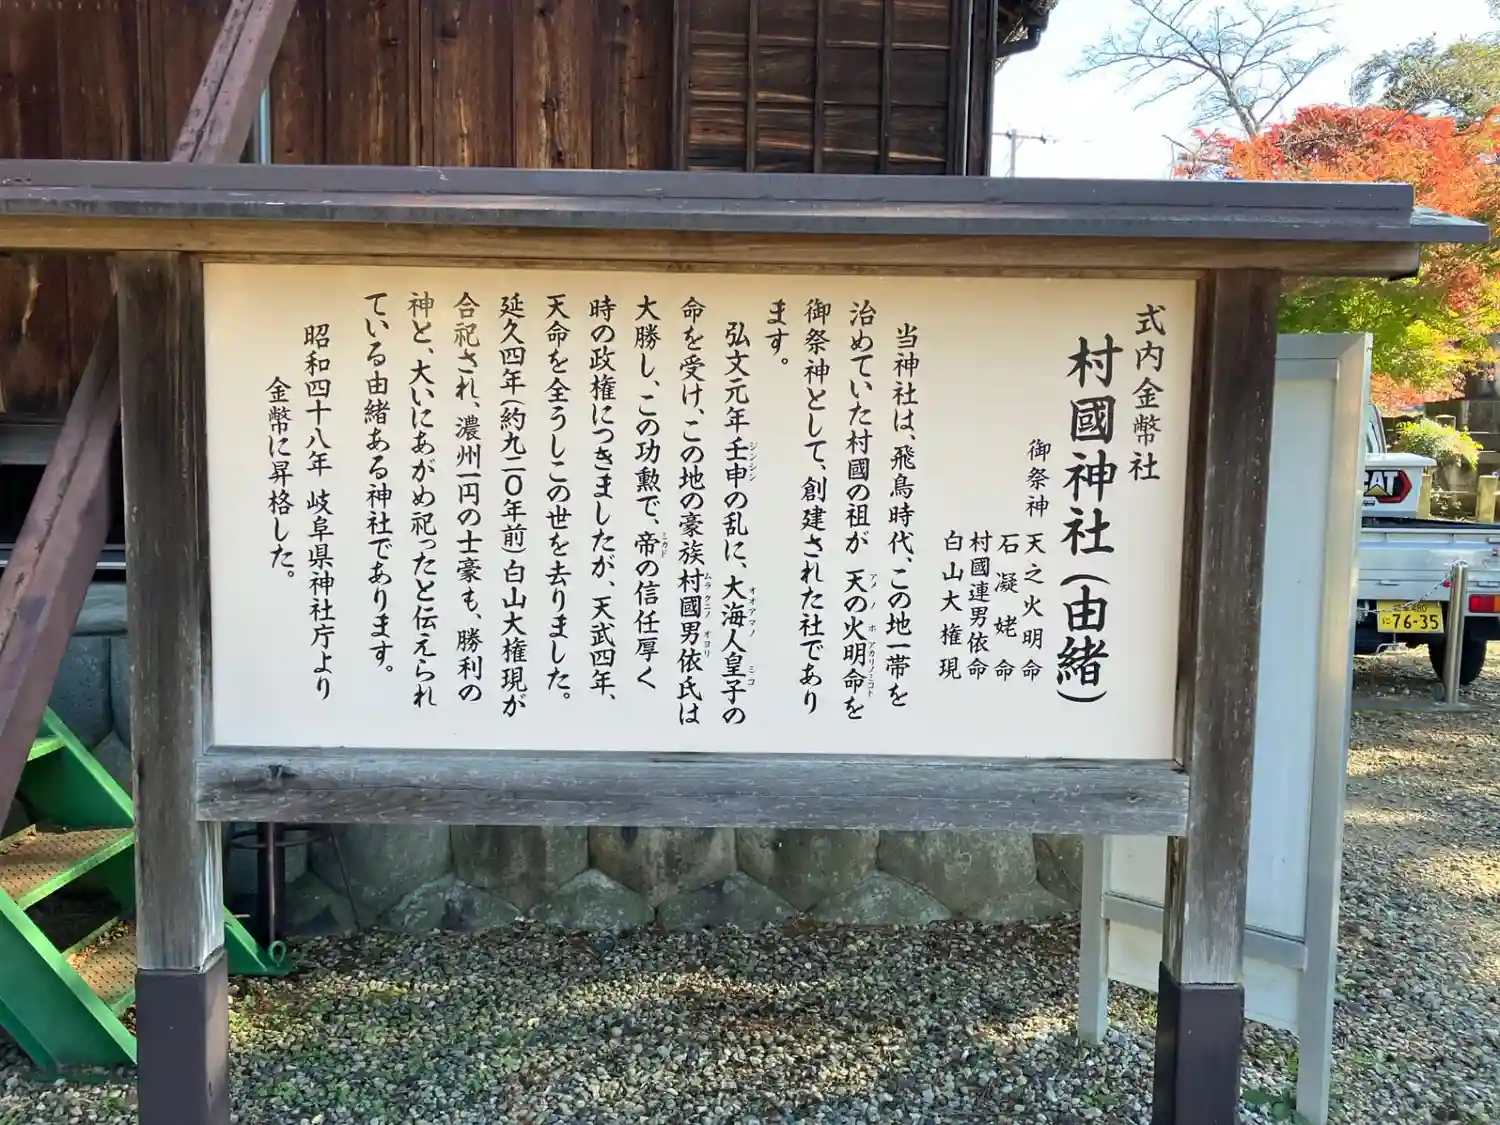 式内金幣社
村國神社(由緒)
御祭神 天之火明命
石凝姥命
村國連男依命
白山大権現
当神社は、飛鳥時代、この地一帯を
治めていた村國の祖が 天の火明命を
御祭神として、創建された社であり
ます。
弘文元年壬申の乱に、大海人皇子の
命を受け、この地の豪族村國男依氏は
大勝し、この功勲で、帝の信任厚く
時の政権につきましたが、天武四年、
天命を全うしこの世を去りました。
延久四年(約九二〇年前)白山大権現が
合祀され、濃州一円の士豪も、勝利の
神と、大いにあがめ祀ったと伝えられ
ている由緒ある神社であります。
昭和四十八年 岐阜県神社庁より
金幣に昇格した。
CAT
76-35